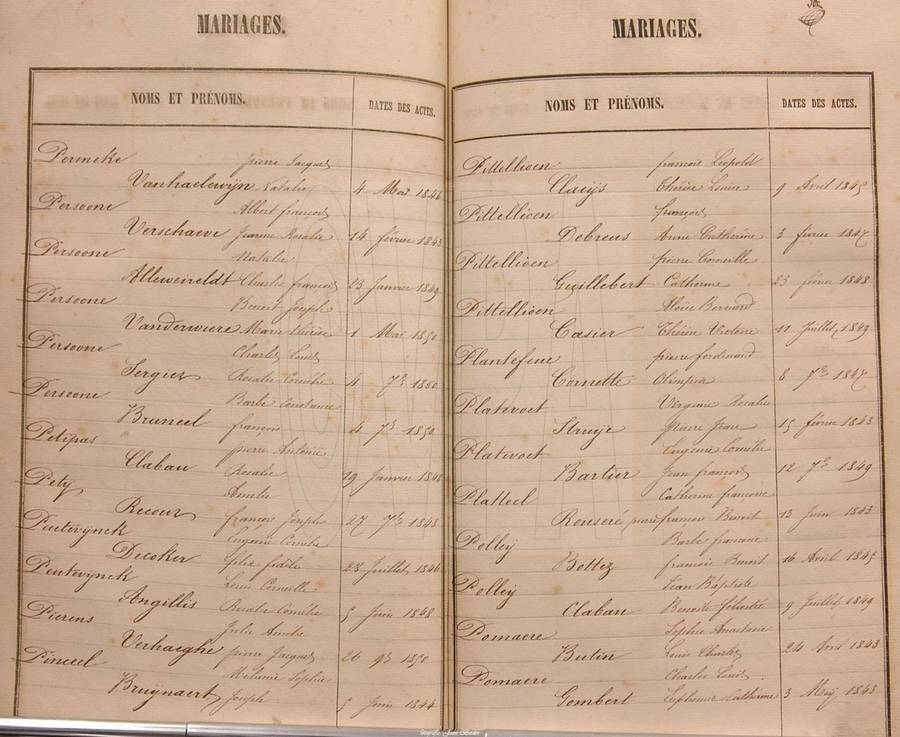 MARIAGES.
NOMS ET PRÉNOMS. DATES DES ACTES.
Permeke pierre Jacques
Vanhaelewyn Natalie 4 Mai 1846
Persoone Albert françois
Verschaeve Jeanne Rosalie 14 février 1843
Persoone Natalie
Alleweireldt Charles françois 23 Janvier 1849
Persoone Benoit Joseph
Vanderwiere Marie Thérèse 1 Mai 1850
Persoone Charles Louis
Sergier Rosalie Cornélie 4 7bre 1850
Persoone Barbe Constance
Bruneel françois 4 7bre 1850
Petipas pierre Antoine
Clabau Rosalie 19 Janvier 1848
Pety Amelie
Recour françois Joseph 27 7bre 1843
Peutevijnck Eugenie Cornélie
Decoker fidèle 28 Juillet 1846
Peutevijnck Louis Corneille
Angillis Rosalie Cornélie 5 Juin 1848
Pierens Julie Amélie
Verhaeghe pierre Jacques 26 9bre 1850
Pinceel Melanie Sophie
Bruynaert Joseph 5 Juin 1844
MARIAGES.
NOMS ET PRÉNOMS. DATES DES ACTES.
Pittellioen françois Léopold
Claeijs Thérèse Louise 9 Avril 1845
Pittellioen françois
Debreus Anne Catherine 3 février 1847
Pittellioen pierre Corneille
Guillebert Catherine 23 février 1848
Pittellioen Bernard
Casier Thérèse Victoire 11 Juillet 1849
Plantefeve pierre ferdinand
Cornette Olimpia 8 7bre 1847
Platevoet Virginie Rosalie
Struye Pierre Jean 15 février 1843
Platevoet Eugenie Cornélie
Bartier Jean françois 12 7bre 1849
Platteel Catherine françoise
Rouseré françois Benoit 13 Juin 1843
Polley Barbe francoise
Bottez françois Benoit 16 Avril 1845
Polley Jean Baptiste
Clabau Benoite Félicité 9 Juillet 1849
Pomaere Sophie Anastasie
Butin Louis Charles 24 Avril 1843
Pomaere Charles Louis
Gombert Euphemie Catherine 3 Maij 1843